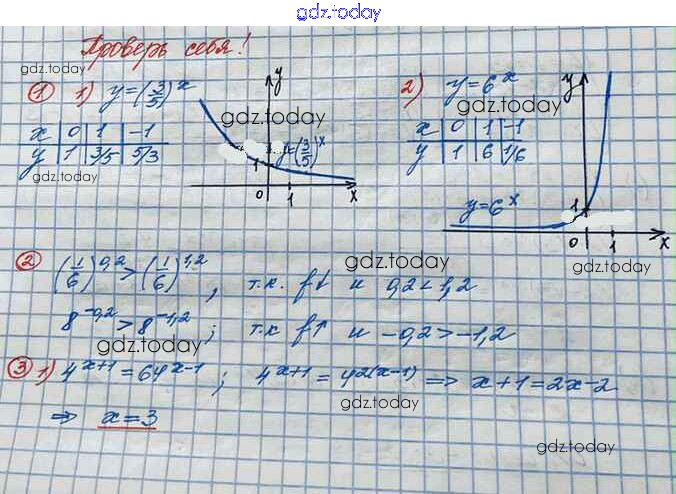 gdz.today
Проверь себя!
gdz.today
① 1) y=(3/5)^x
x 0 1 -1
y 1 3/5 5/3
gdz.today
y
gdz.today
y=(3/5)^x
1
0 1 x
2) y=6^x
gdz.today
x 0 1 -1
y 1 6 1/6
y
y=6^x
1
0 1 x
gdz.today
② (1/6)^0,2 > (1/6)^1,2, т.к. f↓ и 0,2<1,2
gdz.today
gdz.today
8^-0,2 > 8^-1,2; т.к f↑ и -0,2>-1,2
gdz.today
③ 1) 4^x+1 = 64^x-1; 4^x+1 = 4^2(x-1) => x+1=2x-2
gdz.today
=> x=3
gdz.today
gdz.today